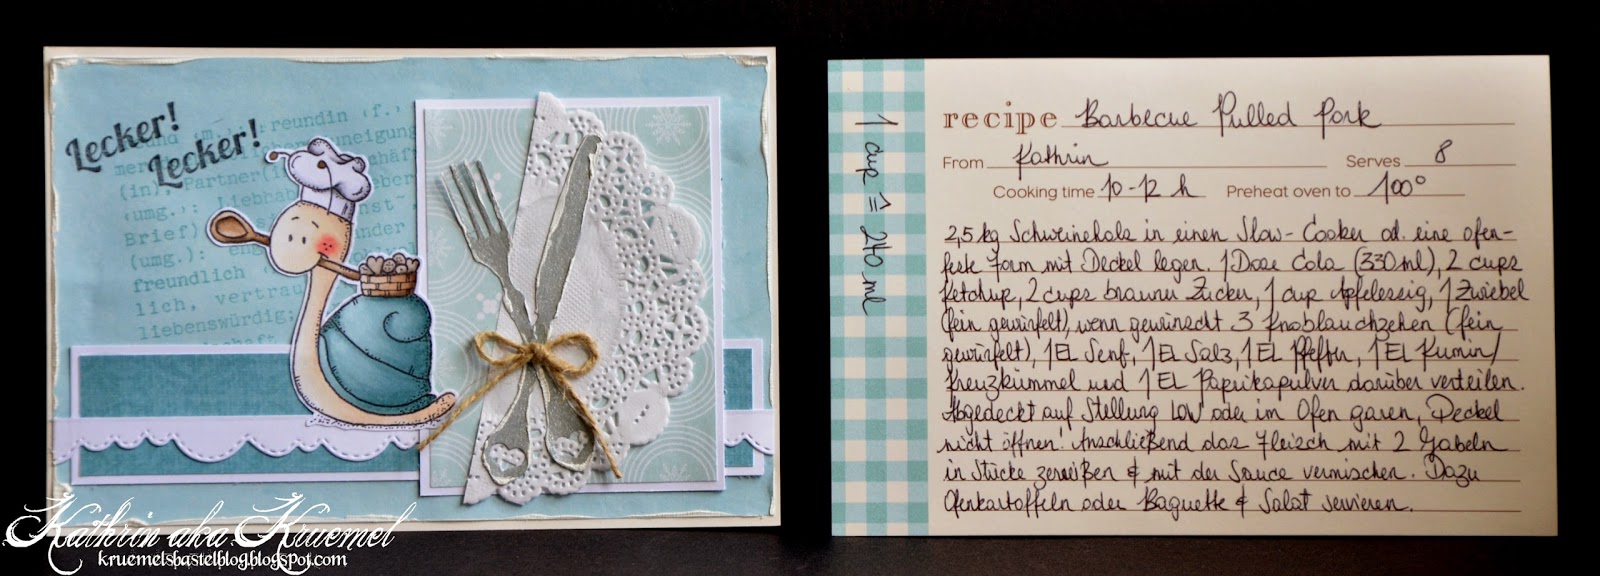 Lecker!
Lecker!
freundin (f.)
(in), Partner(in
(umg.): Liebhab
Brief)
(umg.): eng
freundlich
lich, vertrau
liebenswürdig;
recipe Barbecue Pulled Pork
From Kathrin Serves 8
Cooking time 10-12 h Preheat oven to 100°
2,5 kg Schweinehals in einen Slow-Cooker od. eine ofen-
feste Form mit Deckel legen. 1 Dose Cola (330 ml), 2 cups
Ketchup, 2 cups brauner Zucker, 1 cup Apfelessig, 1 Zwiebel
(fein gewürfelt), wenn gewünscht 3 Knoblauchzehen (fein
gewürfelt), 1 EL Senf, 1 EL Salz, 1 EL Pfeffer, 1 EL Kumin/
Kreuzkümmel und 1 EL Paprikapulver darüber verteilen.
Abgedeckt auf Stellung LOW oder im Ofen garen, Deckel
nicht öffnen! Anschließend das Fleisch mit 2 Gabeln
in Stücke zerreißen & mit der Sauce vermischen. Dazu
Ofenkartoffeln oder Baguette & Salat servieren.
1 cup ≙ 240 ml
Kathrin aka Kruemel
kruemelsbastelblog.blogspot.com